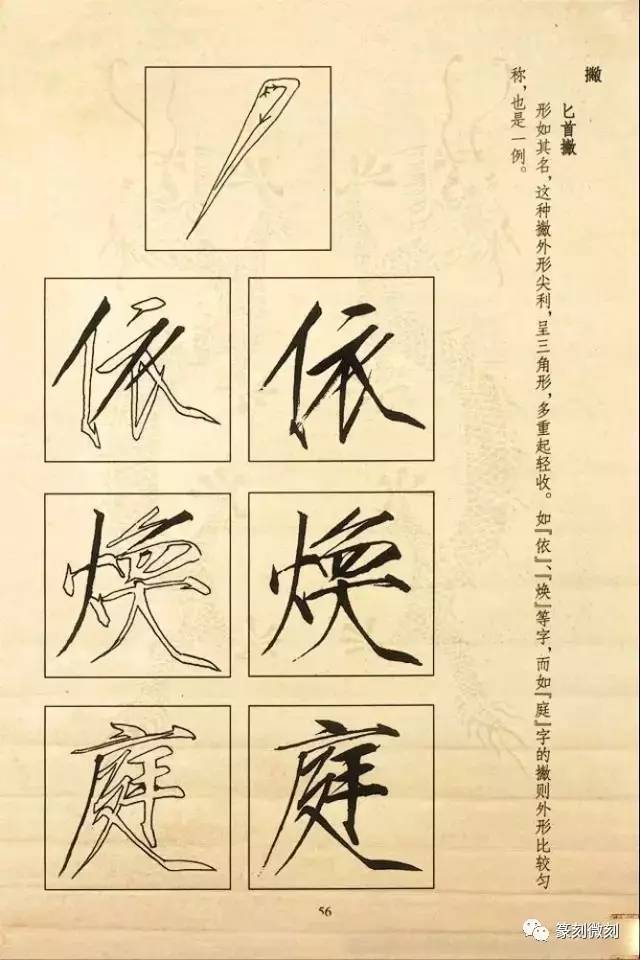 撇
匕首撇
形如其名，这种撇外形尖利，呈三角形，多重起轻收。如『依』、『焕』等字，而如『庭』字的撇则外形比较匀
称，也是一例。
依 依
焕 焕
庭 庭
56
篆刻微刻